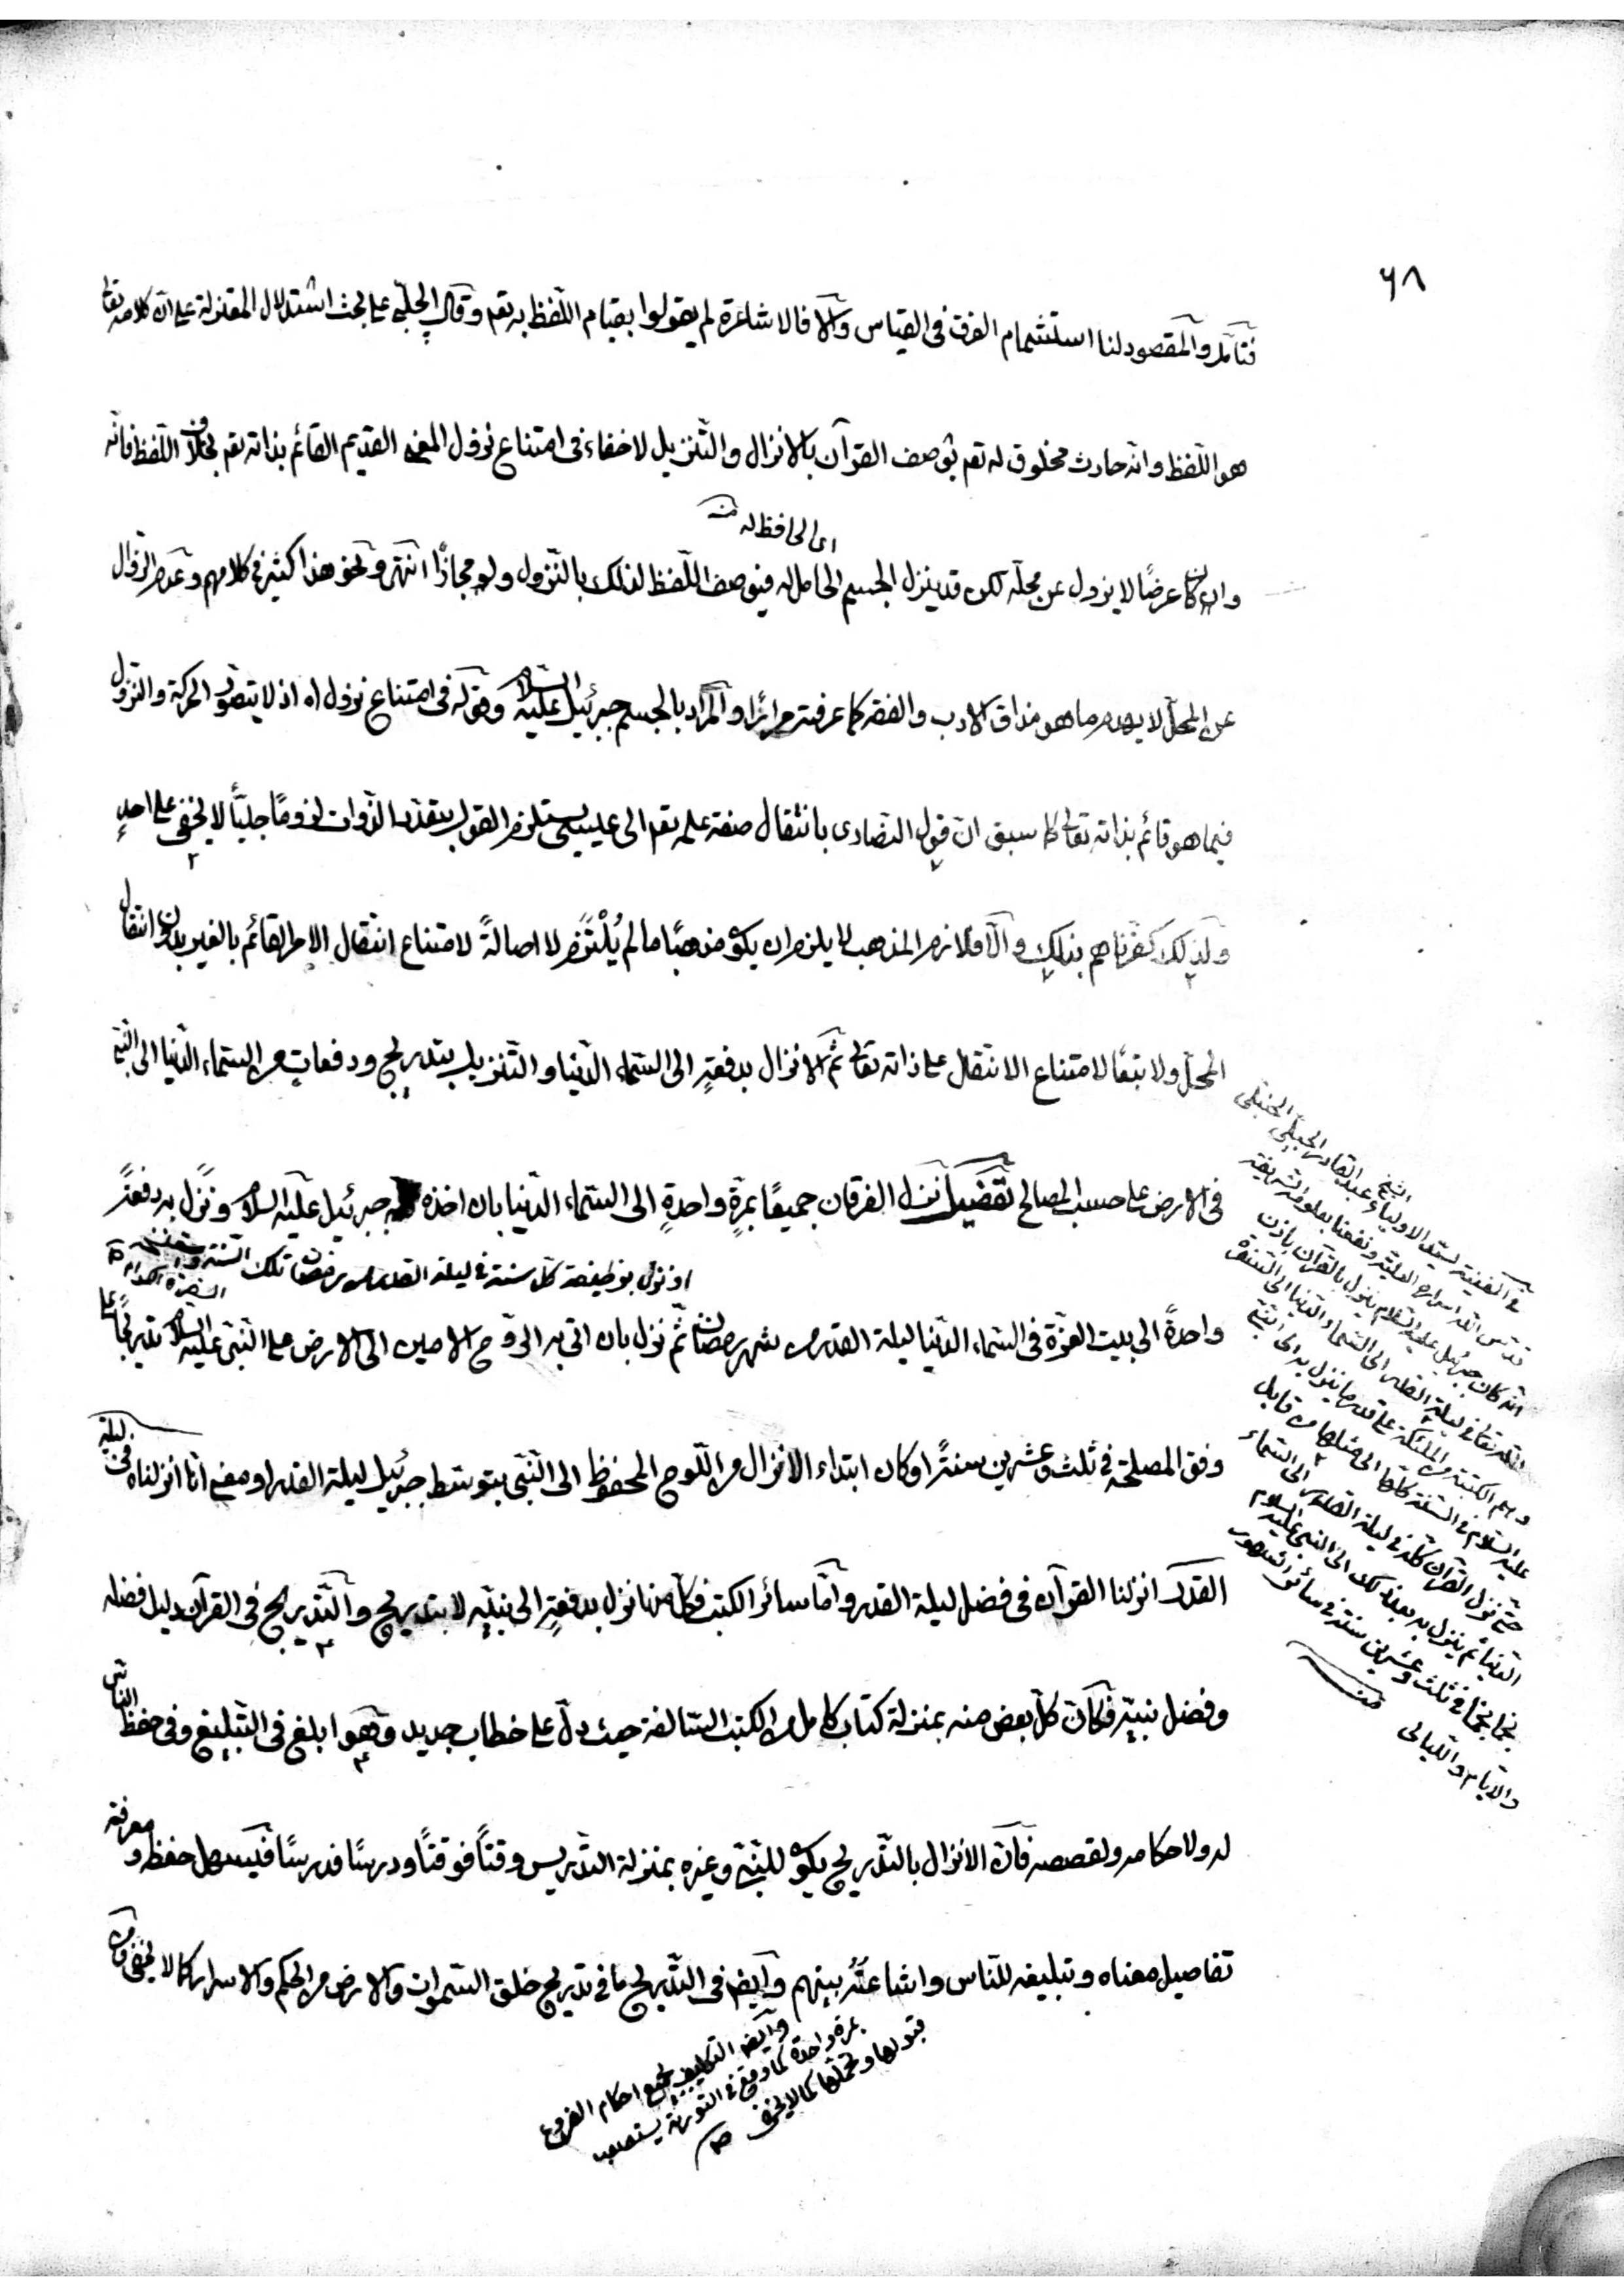 ٦٨
فتأمل والمقصود لنا استشمام الفرق فى القياس والا فالاشاعرة لم يقولوا بقيام اللفظ به تعم وقال الجلبى على بحث استدلال المعتزلة على ان كلامه تعالى
هو اللفظ وانه حادث مخلوق له تعم بوصف القرآن بالانزال والتنزيل لا خفاء فى امتناع نزول المعنى القديم القائم بذاته تعم بخلاف اللفظ فانه
اى الحافظ له منه
وان كان عرضًا لا يزول عن محله لكن قد ينزل الجسم الحامل له فيوصف اللفظ لذلك بالنزول ولو مجازًا انتهى ونحو هذا كثير فى كلامهم وعدم الزوال
عن المحل لا يهدم ما هو مذاق الادب والفقه كما عرفته مرائرا والمراد بالجسم جبرئيل عليه السلام وقوله فى امتناع نزول اه اذ لا يتصور الحركة والنزول
فيما هو قائم بذاته تعالى كما سبق ان قول النصارى بانتقال صفة علمه تعم الى عيسى يستلزم القول بتعدد الذوات لزومًا جليًّا لا يخفى على احدٍ
ولذلك كفرناهم بذلك والا فلازم المذهب لا يلزم ان يكون مذهبًا ما لم يُلْتَزم لا اصالةً لامتناع انتقال الامر القائم بالغير بدون انتقال
المحل ولا تبعًا لامتناع الانتقال على ذاته تعالى ثم الانزال بدفعةٍ الى السماء الدنيا والتنزيل بتدريج ودفعات من السماء الدنيا الى النبى
فى الارض على حسب المصالح تفصيل نزل الفرقان جميعًا بمرّةٍ واحدةٍ الى السماء الدنيا بان اخذه جبرئيل عليه السلام ونزل به دفعةً
او نزل بوظيفة كل سنة فى ليلة القدر من رمضان تلك السنة
واحدةً الى بيت العزة فى السماء الدنيا ليلة القدر من شهر رمضان ثم نزل بان اتى به الروح الامين الى الارض على النبى عليه السلام تدريجًا على
وفق المصلحة فى ثلث وعشرين سنةً او كان ابتداء الانزال من اللوح المحفوظ الى النبى بتوسط جبرئيل ليلة القدر او معنى انا انزلناه فى ليلة
القدر انزلنا القرآن فى فضل ليلة القدر واما سائر الكتب فكل منها نزل بدفعةٍ الى نبيّه لا بتدريج والتدريج فى القرآن دليل فضله
وفضل نبيّه فكان كل بعض منه بمنزلة كتاب كامل من الكتب السالفة حيث دل على خطاب جديد وهو ابلغ فى التبليغ وفى حفظ الناس
له ولاحكامه ولقصصه فان الانزال بالتدريج يكون للنبى وغيره بمنزلة التدريس وقتًا فوقتًا ودرسًا فدرسًا فيسهل حفظه ومعرفة
تفاصيل معناه وتبليغه للناس واشاعته بينهم وايضا فى التدريج ما فى تدريج خلق السموات والارض من الحكم والاسرار كما لا يخفى
وايضا التكليف بجميع احكام الفروع
بمرة واحدة كما وقع فى التورية يستصعب
قبولها وتحملها كما لا يخفى صح
فى الغنية لسيد الاولياء الشيخ عبد القادر الجيلى الحنبلى
قدس الله اسراره العلية ونفعنا بعلومه الشريفة
انه كان جبرئيل عليه السلام ينزل بالقرآن باذن
الله تعالى فى ليلة القدر الى السماء الدنيا الى السفرة
وهم الكتبة من الملئكة على قدر ما ينزل به الى النبى
عليه السلام فى السنة كلها الى مثلها من قابل
حتى نزل القرآن كله فى ليلة القدر الى السماء
الدنيا ثم ينزل به بعد ذلك الى النبى عليه السلام
نجما نجما فى ثلث وعشرين سنة فى سائر الشهور
والايام والليالى منه